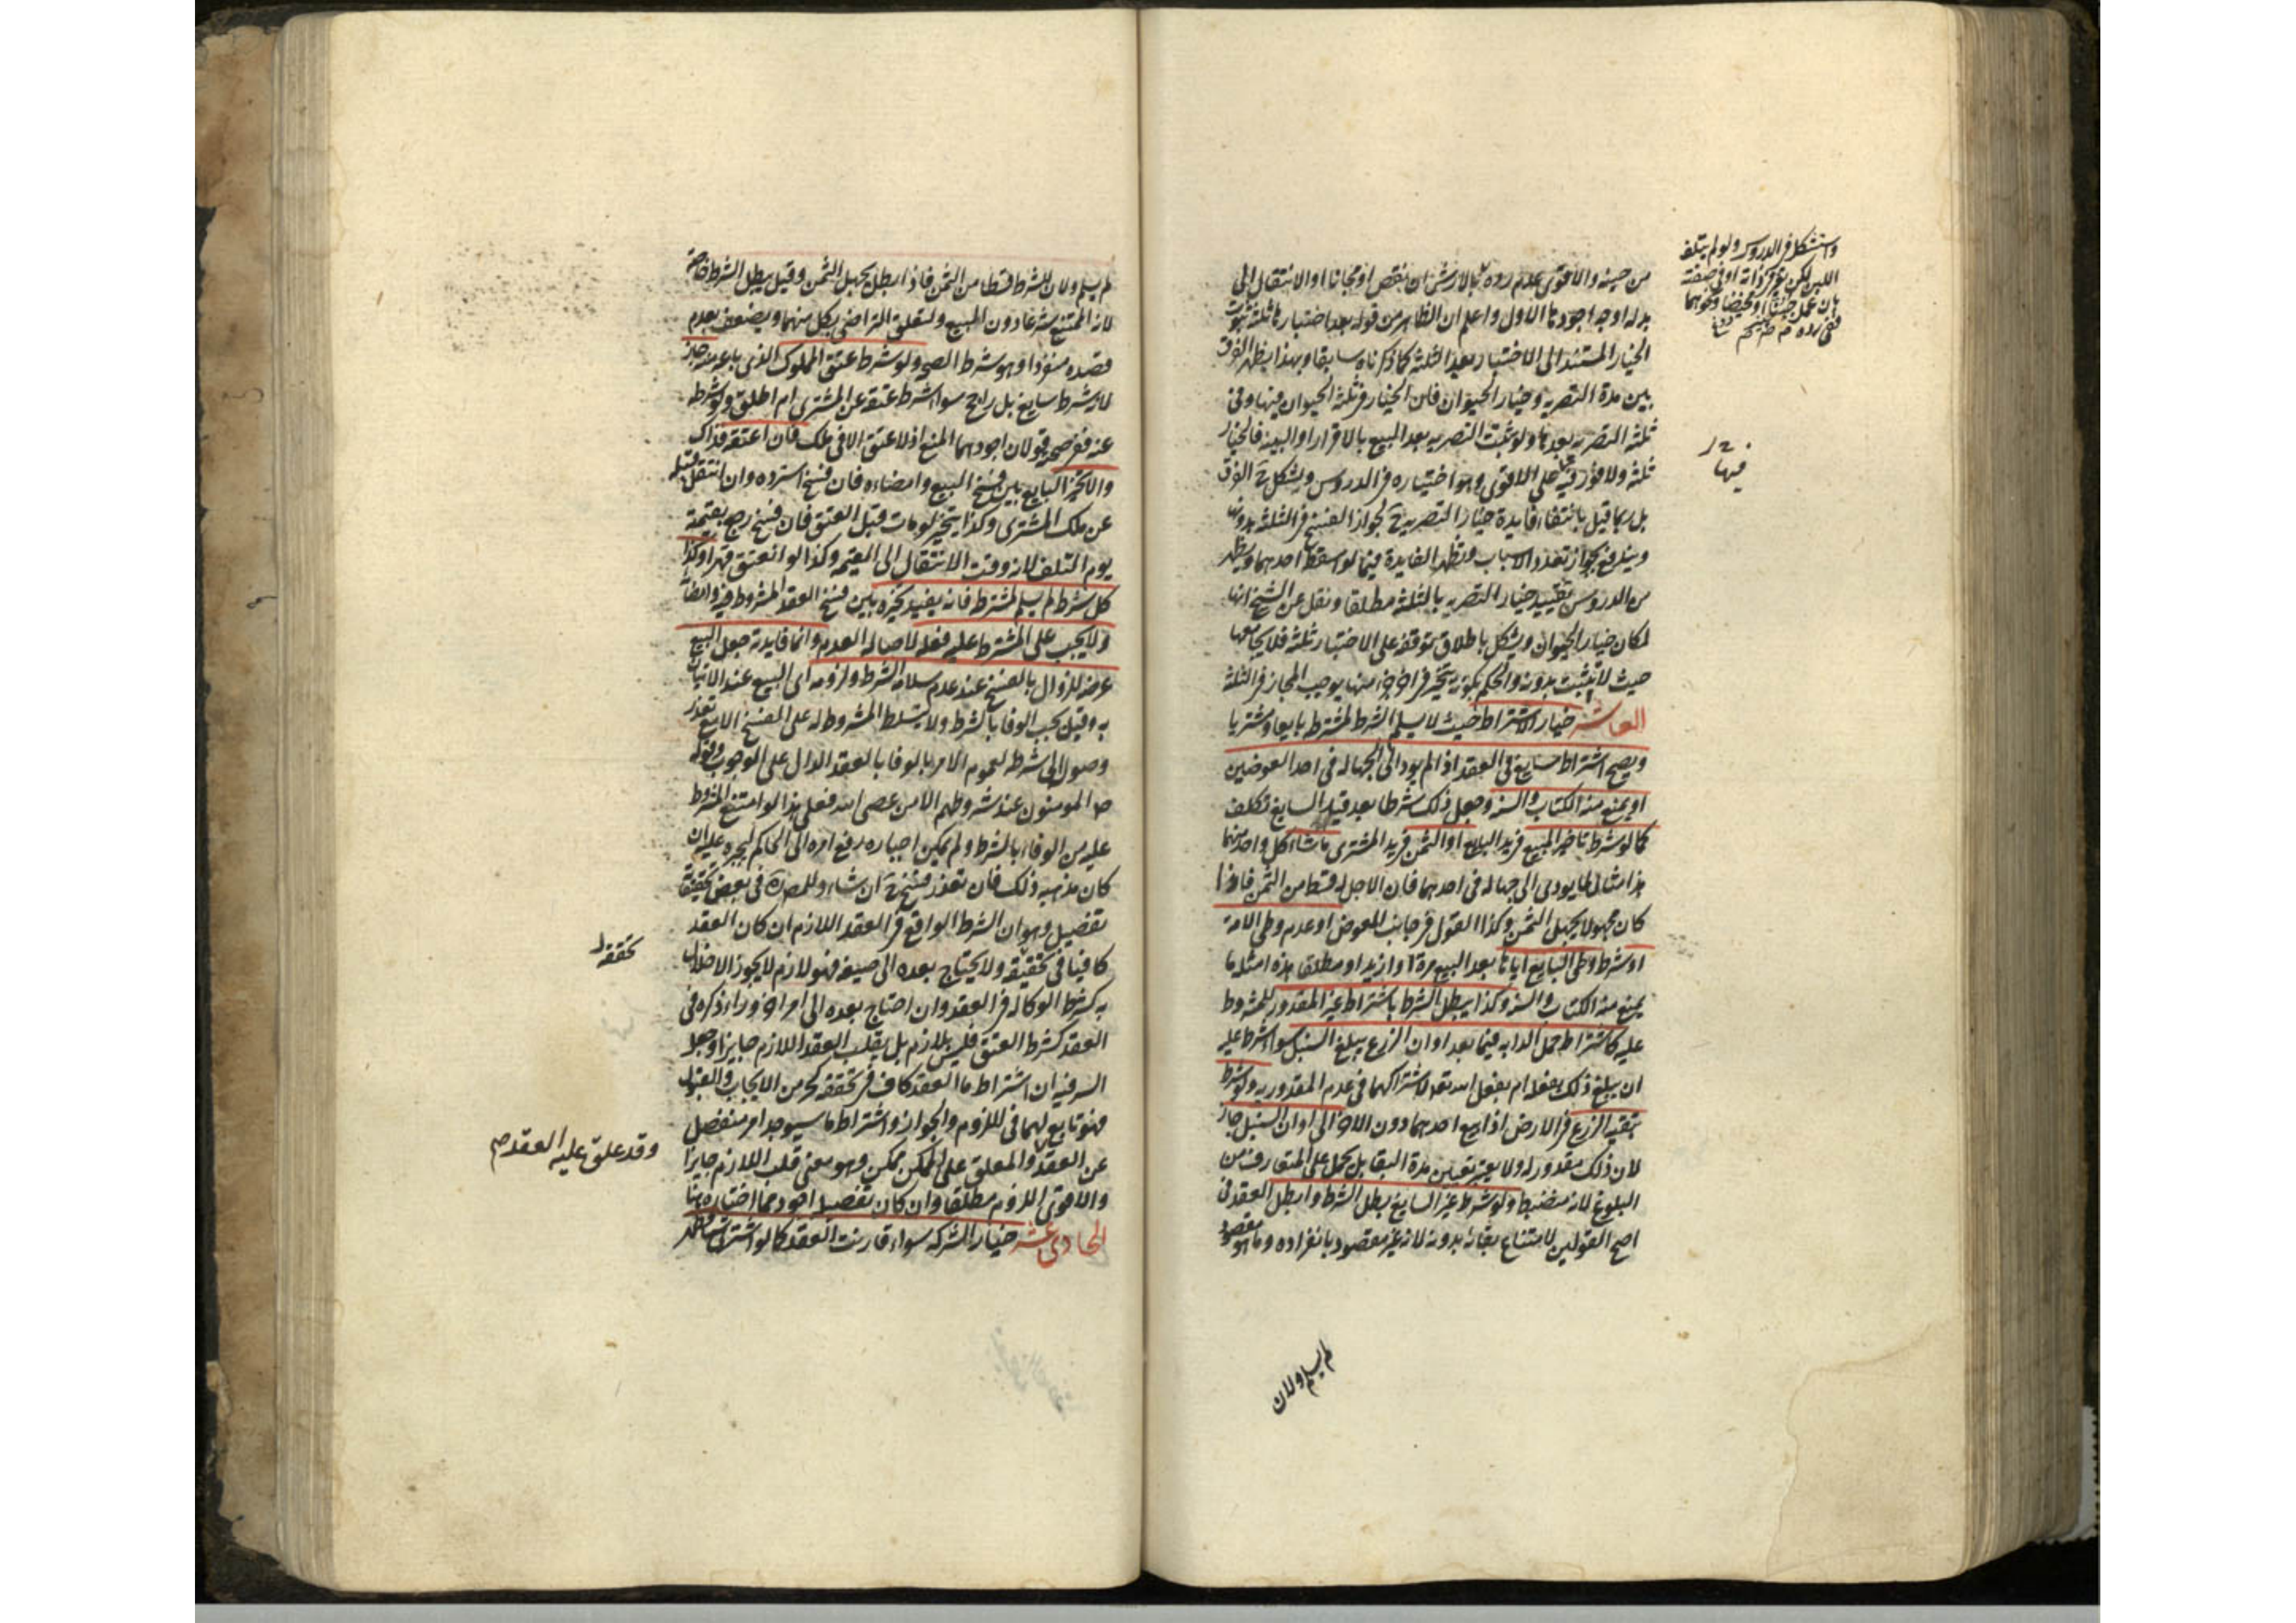 من حينه والاقوى عدم رده بالارش ان نقص او مجانا او الانتقال الى
بدله اوجه اجودها الاول واعلم ان الظاهر من قوله بعد اختبارها ثلثة ثبوت
الخيار المستند الى الاختبار بعد الثلثة كما ذكرناه سابقا وبهذا يظهر الفرق
بين مدة التصرية وخيار الحيوان فان الخيار في ثلثة الحيوان فيها وفي
ثلثة التصرية بعدها ولو ثبت التصرية بعد البيع بالاقرار او البينة فالخيار
ثلثة ولا فور فيه على الاقوى وهو اختياره في الدروس ويشكل ح الفرق
بل ربما قيل بانتفاء فايدة خيار التصرية ح لجواز الفسخ في الثلثة بدونها
ويندفع بجواز تعدد الاسباب وتظهر الفايدة فيما لو اسقط احدهما ويظهر
من الدروس تقييد خيار التصرية بالثلثة مطلقا ونقل عن الشيخ انها
لمكان خيار الحيوان ويشكل باطلاق توقفه على الاختبار ثلثة فلا يجامعها
حيث لا تثبت بدونه والحكم بكونه يتخير في اخر جزء منها يوجب المجاز في الثلثة
العاشر خيار الاشتراط حيث لا يسلم الشرط لمشترطه بايعا ومشتريا
ويصح اشتراط سايغ في العقد اذا لم يود الى الجهالة في احد العوضين
او يمنع منه الكتاب والسنة وجعل ذلك شرطا بعد قيد السايغ تكلف
كما لو شرط تاخير المبيع في يد البايع او الثمن في يد المشترى ما شاء كل واحد منهما
هذا مثال لما يودى الى جهالة في احدهما فان الاجل له قسط من الثمن فاذا
كان مجهولا يجهل الثمن وكذا القول في جانب المعوض او عدم وطى الامة
او شرط وطى البايع اياها بعد البيع مرة او ازيد او مطلقا هذه امثلة ما
يمنع منه الكتاب والسنة وكذا يبطل الشرط باشتراط غير المقدور للمشروط
عليه كاشتراط حمل الدابة فيما بعد او ان الزرع يبلغ السنبل سواء شرط عليه
ان يبلغ ذلك بفعله ام بفعل الله تعالى لاشتراكهما في عدم المقدورية ولو شرط
تبقية الزرع في الارض اذا بيع احدهما دون الاخر الى اوان السنبل جاز
لان ذلك مقدور له ولا يعتبر تعيين مدة البقا بل يحمل على المتعارف من
البلوغ لانه منضبط ولو شرط غير السايغ بطل الشرط وابطل العقد في
اصح القولين لامتناع بقائه بدونه لانه غير مقصود بانفراده وما هو مقصود
لم يسلم ولان
واستشكل في الدروس ولو لم يتلف
اللبن لكن تغير في ذاته او في صفته
بان عمل جبنا او مخيضا ونحوهما
ففي رده
فيها
لم يسلم ولان للشرط قسطا من الثمن فاذا بطل يجهل الثمن وقيل يبطل الشرط خاصة
لانه الممتنع شرعا دون المبيع ولتعلق التراضي بكل منهما ويضعف بعدم
قصده منفردا وهو شرط الصحة ولو شرط عتق المملوك الذي باعه منه جاز
لانه شرط سايغ بل راجح سواء شرط عتقه عن المشترى ام اطلق ولو شرطه
عنه ففي صحته قولان اجودهما المنع اذ لا عتق الا في ملك فان اعتقه فذاك
والا تخير البايع بين فسخ البيع وامضاءه فان فسخ استرده وان انتقل قبله
عن ملك المشترى وكذا يتخير لو مات قبل العتق فان فسخ رجع بقيمته
يوم التلف لانه وقت الانتقال الى القيمة وكذا لو انعتق قهرا وكذا
كل شرط لم يسلم لمشترطه فانه يفيد تخيره بين فسخ العقد المشروط فيه وامضائه
ولا يجب على المشترط عليه فعله لاصالة العدم وانما فايدته جعل البيع
عرضة للزوال بالفسخ عند عدم سلامة الشرط ولزومه اى البيع عند الاتيان
به وقيل يجب الوفا بالشرط ولا يتسلط المشروط له على الفسخ الا مع تعذر
وصوله الى شرطه لعموم الامر بالوفا بالعقد الدال على الوجوب وقوله
ص المومنون عند شروطهم الا من عصى الله فعلى هذا لو امتنع المشروط
عليه من الوفاء بالشرط ولم يمكن اجباره رفع امره الى الحاكم ليجبره عليه ان
كان مذهبه ذلك فان تعذر فسخ ح ان شاء وللمصره في بعض تحقيقاته
تفصيل وهو ان الشرط الواقع في العقد اللازم ان كان العقد
كافيا في تحقيقه ولا يحتاج بعده الى صيغة فهو لازم لا يجوز الاخلال
به كشرط الوكالة في العقد وان احتاج بعده الى امر اخر وراء ذكره في
العقد كشرط العتق فليس بلازم بل يقلب العقد اللازم جايزا وجعل
السر فيه ان اشتراط ما العقد كاف في تحققه كجزء من الايجاب والقبول
فهو تابع لهما في اللزوم والجواز واشتراط ما سيوجد امر منفصل
عن العقد والمعلق على الممكن ممكن وهو معنى قلب اللازم جايزا
والاقوى اللزوم مطلقا وان كان تفصيله اجود مما اختاره هنا
الحادى عشر خيار الشركة سواء قارنت العقد كما لو اشترى شيئا فظهر
تحققه
وقد علق عليه العقد صح